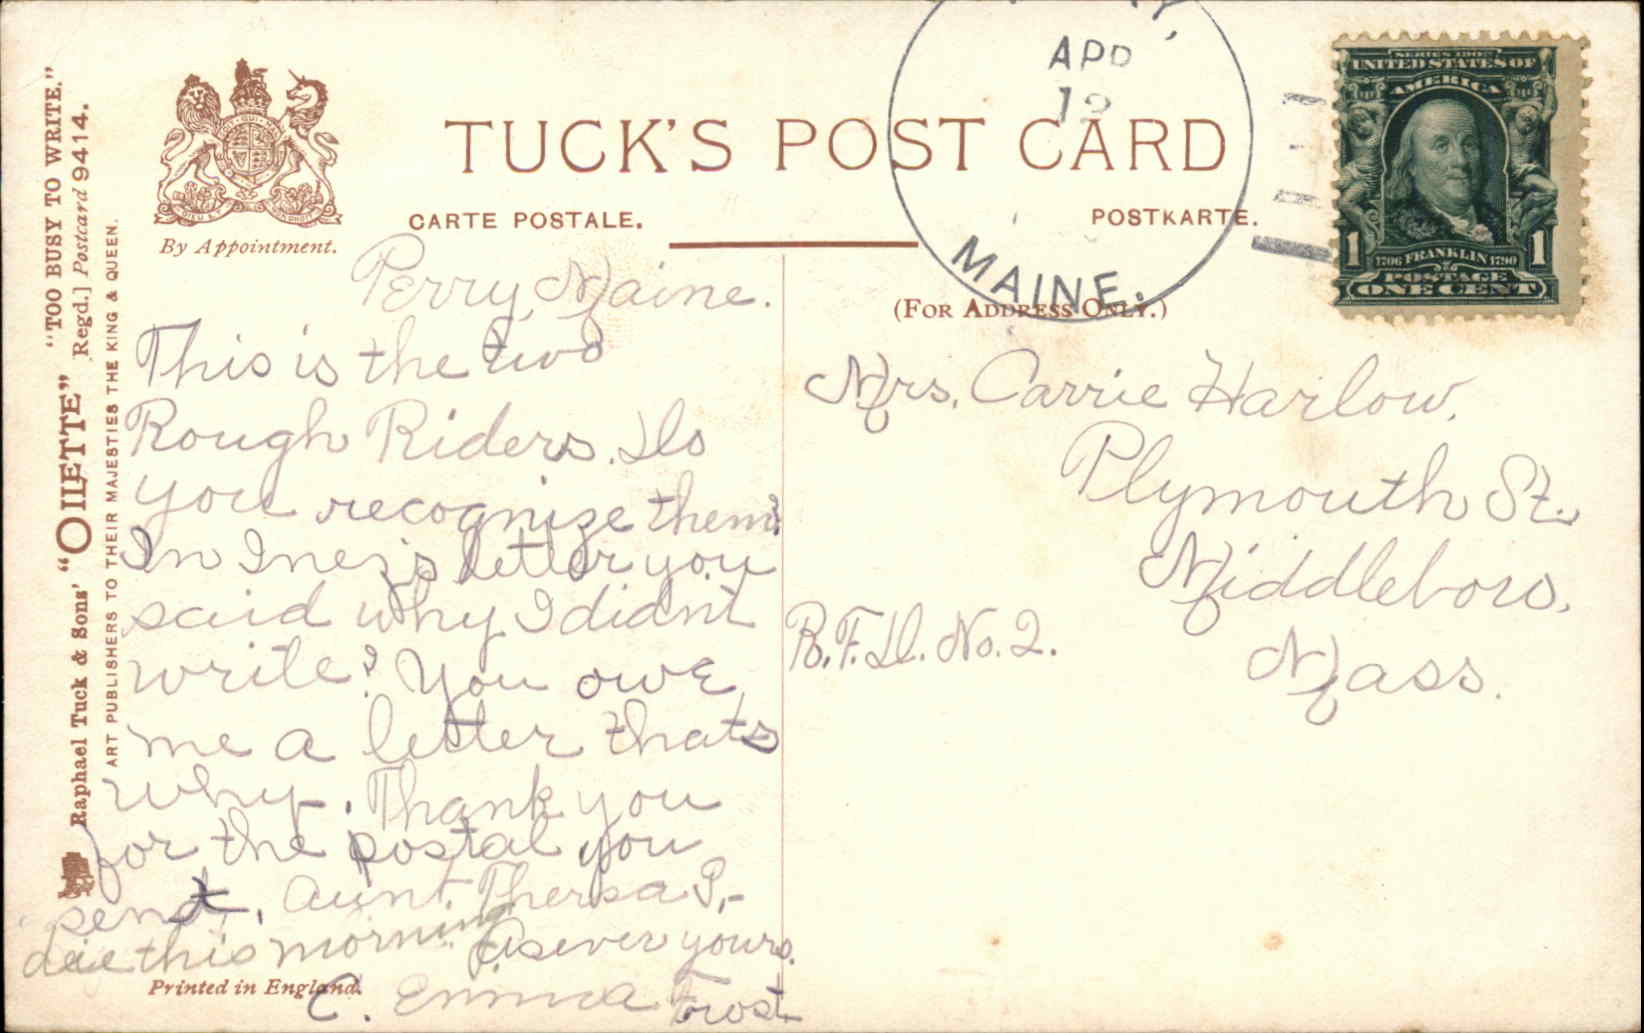 "TOO BUSY TO WRITE."
Raphael Tuck & Sons' "OILETTE" Regd.] Postcard 9414.
ART PUBLISHERS TO THEIR MAJESTIES THE KING & QUEEN.
By Appointment.
TUCK'S POST CARD
CARTE POSTALE.
POSTKARTE.
(FOR ADDRESS ONLY.)
APR
MAINE.
SERIES 1902
UNITED STATES OF
AMERICA
1706 FRANKLIN 1790
1 1
POSTAGE
ONE CENT
Perry, Maine.
This is the two
Rough Riders. Do
you recognize them?
In Inez's letter you
said why I didn't
write? You owe
me a letter thats
why. Thank you
for the postal you
send. Aunt Thersa P.
die this morning. As ever yours.
C. Emma Frost
Mrs. Carrie Harlow.
Plymouth St.
Middleboro.
R.F.D. No. 2.
Mass.
Printed in England.